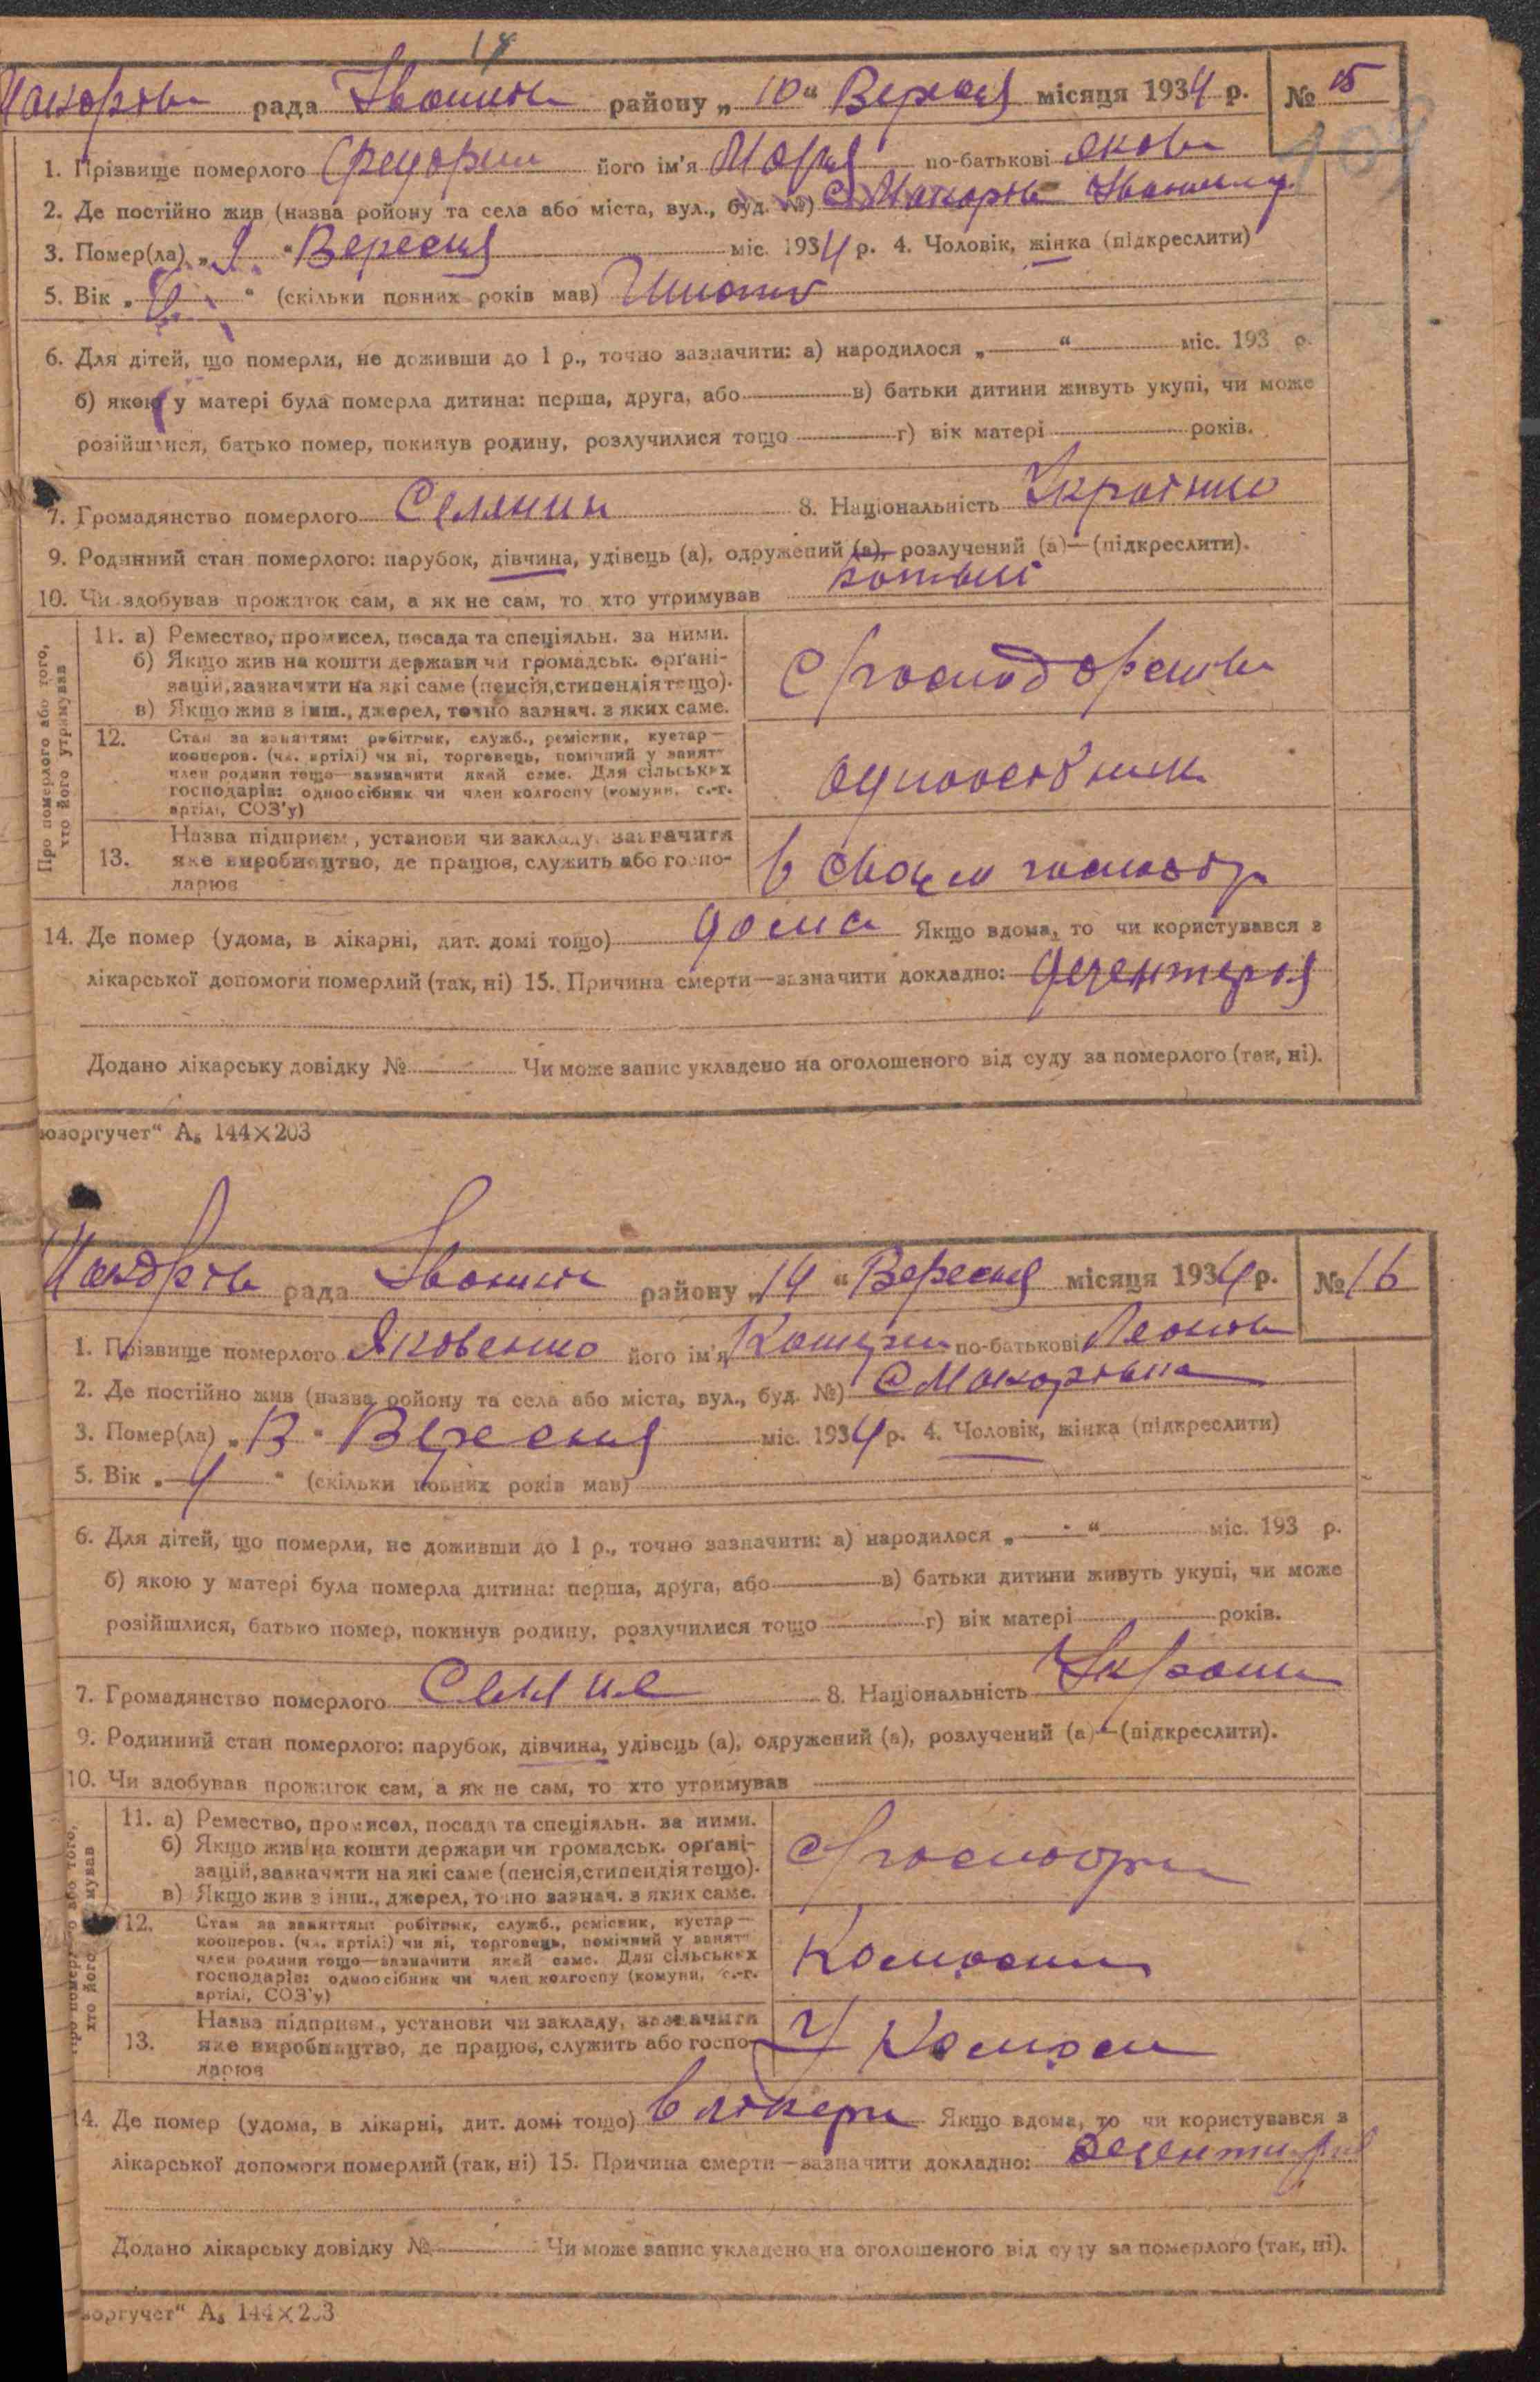 рада району „ 10 “ Вересня місяця 1934 р. № 15
1. Прізвище померлого його ім'я Марія по-батькові Яковл
2. Де постійно жив (назва ройону та села або міста, вул., буд. №) с
3. Помер(ла) „ “ Вересня міс. 1934 р. 4. Чоловік, жінка (підкреслити)
5. Вік „ “ (скільки повних років мав)
6. Для дітей, що померли, не доживши до 1 р., точно зазначити: а) народилося „ “ міс. 193 р.
б) якою у матері була померла дитина: перша, друга, або в) батьки дитини живуть укупі, чи може
розійшлися, батько помер, покинув родину, розлучилися тощо г) вік матері років.
7. Громадянство померлого Селянин 8. Національність
9. Родинний стан померлого: парубок, дівчина, удівець (а), одружений (а), розлучений (а)—(підкреслити).
10. Чи здобував прожиток сам, а як не сам, то хто утримував
Про померлого або того, хто його утримував
11. а) Ремество, промисел, посада та спеціяльн. за ними.
б) Якщо жив на кошти держави чи громадськ. органі-
зацій, зазначити на які саме (пенсія, стипендія тощо).
в) Якщо жив з інш., джерел, точно зазнач. з яких саме.
12. Стан за заняттям: робітник, служб., ремісник, кустар—
кооперов. (чл. артілі) чи ні, торговець, помічний у занятт
член родини тощо—зазначити який саме. Для сільських
господарів: одноосібник чи член колгоспу (комуни, с.-г.
артілі, СОЗ'у)
одноосібник
13. Назва підприєм., установи чи закладу, зазначити
яке виробництво, де працюв, служить або госпо-
дарюв
в своєм господр
14. Де помер (удома, в лікарні, дит. домі тощо) дома Якщо вдома, то чи користувався з
лікарської допомоги померлий (так, ні) 15. Причина смерти—зазначити докладно: дезентерія
Додано лікарську довідку № Чи може запис укладено на оголошеного від суду за померлого (так, ні).
юзоргучет“ А₅ 144×203
рада району „ 14 “ Вересня місяця 1934 р. № 16
1. Прізвище померлого Яковенко його ім'я по-батькові
2. Де постійно жив (назва ройону та села або міста, вул., буд. №) с
3. Помер(ла) „ 13 “ Вересня міс. 1934 р. 4. Чоловік, жінка (підкреслити)
5. Вік „ “ (скільки повних років мав)
6. Для дітей, що померли, не доживши до 1 р., точно зазначити: а) народилося „ “ міс. 193 р.
б) якою у матері була померла дитина: перша, друга, або в) батьки дитини живуть укупі, чи може
розійшлися, батько помер, покинув родину, розлучилися тощо г) вік матері років.
7. Громадянство померлого 8. Національність
9. Родинний стан померлого: парубок, дівчина, удівець (а), одружений (а), розлучений (а)—(підкреслити).
10. Чи здобував прожиток сам, а як не сам, то хто утримував
11. а) Ремество, промисел, посада та спеціяльн. за ними.
б) Якщо жив на кошти держави чи громадськ. органі-
зацій, зазначити на які саме (пенсія, стипендія тощо).
в) Якщо жив з інш., джерел, точно зазнач. з яких саме.
12. Стан за заняттям: робітник, служб., ремісник, кустар—
кооперов. (чл. артілі) чи ні, торговець, помічний у занятт
член родини тощо—зазначити який саме. Для сільських
господарів: одноосібник чи член колгоспу (комуни, с.-г.
артілі, СОЗ'у)
13. Назва підприєм., установи чи закладу, зазначити
яке виробництво, де працюв, служить або госпо-
дарюв
14. Де помер (удома, в лікарні, дит. домі тощо) в Якщо вдома, то чи користувався з
лікарської допомоги померлий (так, ні) 15. Причина смерти—зазначити докладно:
Додано лікарську довідку № Чи може запис укладено на оголошеного від суду за померлого (так, ні).
зоргучет“ А₅ 144×203